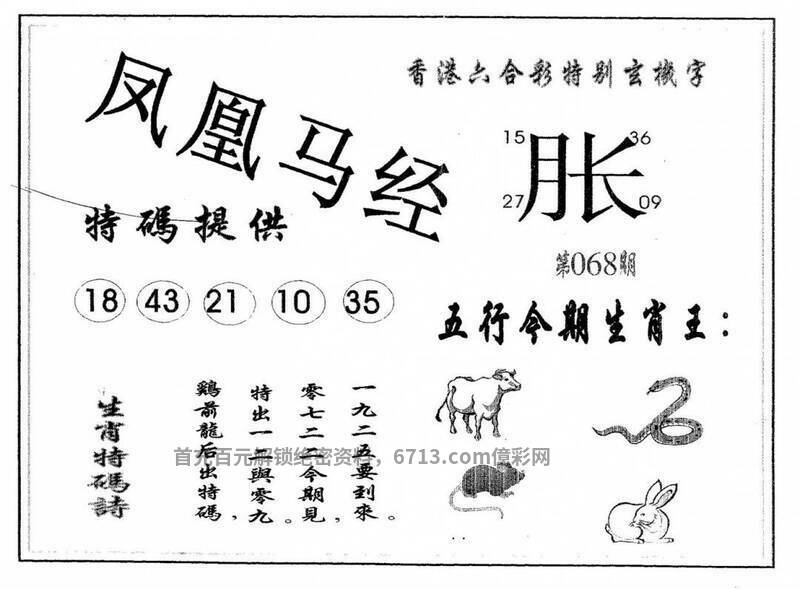 凤凰马经
香港六合彩特别玄機字
15 36
胀
27 09
第068期
特碼提供
18 43 21 10 35
五行今期生肖王：
生肖特碼詩
鷄前龍后出特碼，
特出一二與零九。
零七二二今期見，
一九二五要到來。
首充百元解锁绝密资料，6713.com億彩网